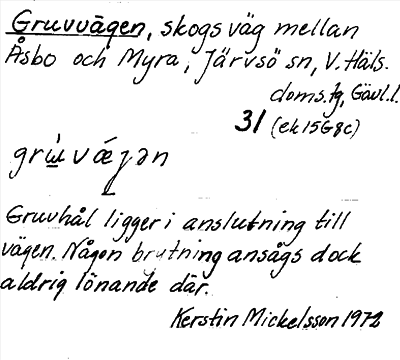 Gruvvägen, skogsväg mellan
Åsbo och Myra, Järvsö sn, V. Häls.
doms.tg, Gävl.l.
31 (ek 15G8c)
grɯ̀vǽʒən
Gruvhål ligger i anslutning till
vägen. Någon brytning ansågs dock
aldrig lönande där.
Kerstin Mickelsson 1972